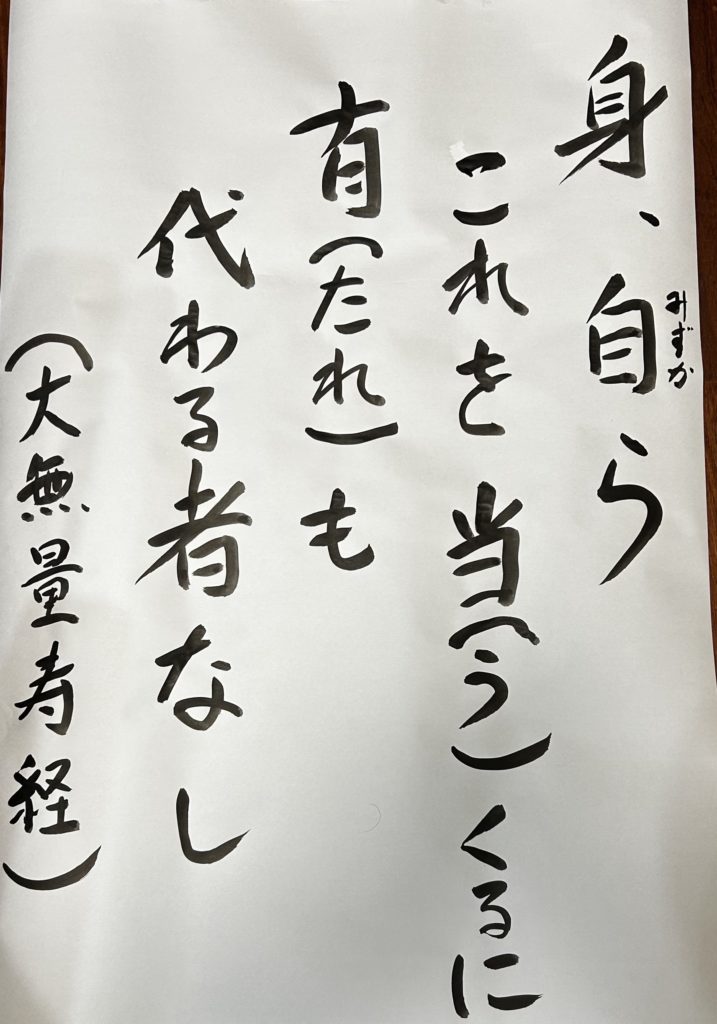 身、自ら
みずか
これを当(う)くるに
有(たれ)も
代わる者なし
(大無量寿経)